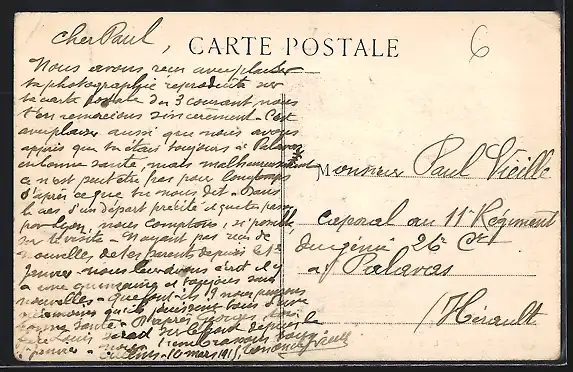 cher Paul,
CARTE POSTALE
6
Nous avons reçu avec plaisir
ta photographie reproduite sur
ta carte postale du 3 courant nous
t'en remercions sincèrement. C'est
avec plaisir aussi que nous avons
appris que tu étais toujours à Palavas
en bonne santé, mais malheureusement
ce n'est peut être pas pour longtemps
d'après ce que tu nous dit. Dans
le cas d'un départ précité et que tu passes
par Lyon, nous comptons, si possible
sur ta visite. N'ayant pas reçu de
nouvelles de tes parents depuis le 1er
Janvier nous leur avons écrit il y
a une quinzaine et toujours sans
nouvelles.
bonne santé. D'après Georges
Louis serait sur le front depuis le
Janvier
10 mars 1915
Monsieur Paul Vieille
caporal au 11e Régiment
du génie 26e Cie
à Palavas
(Hérault)